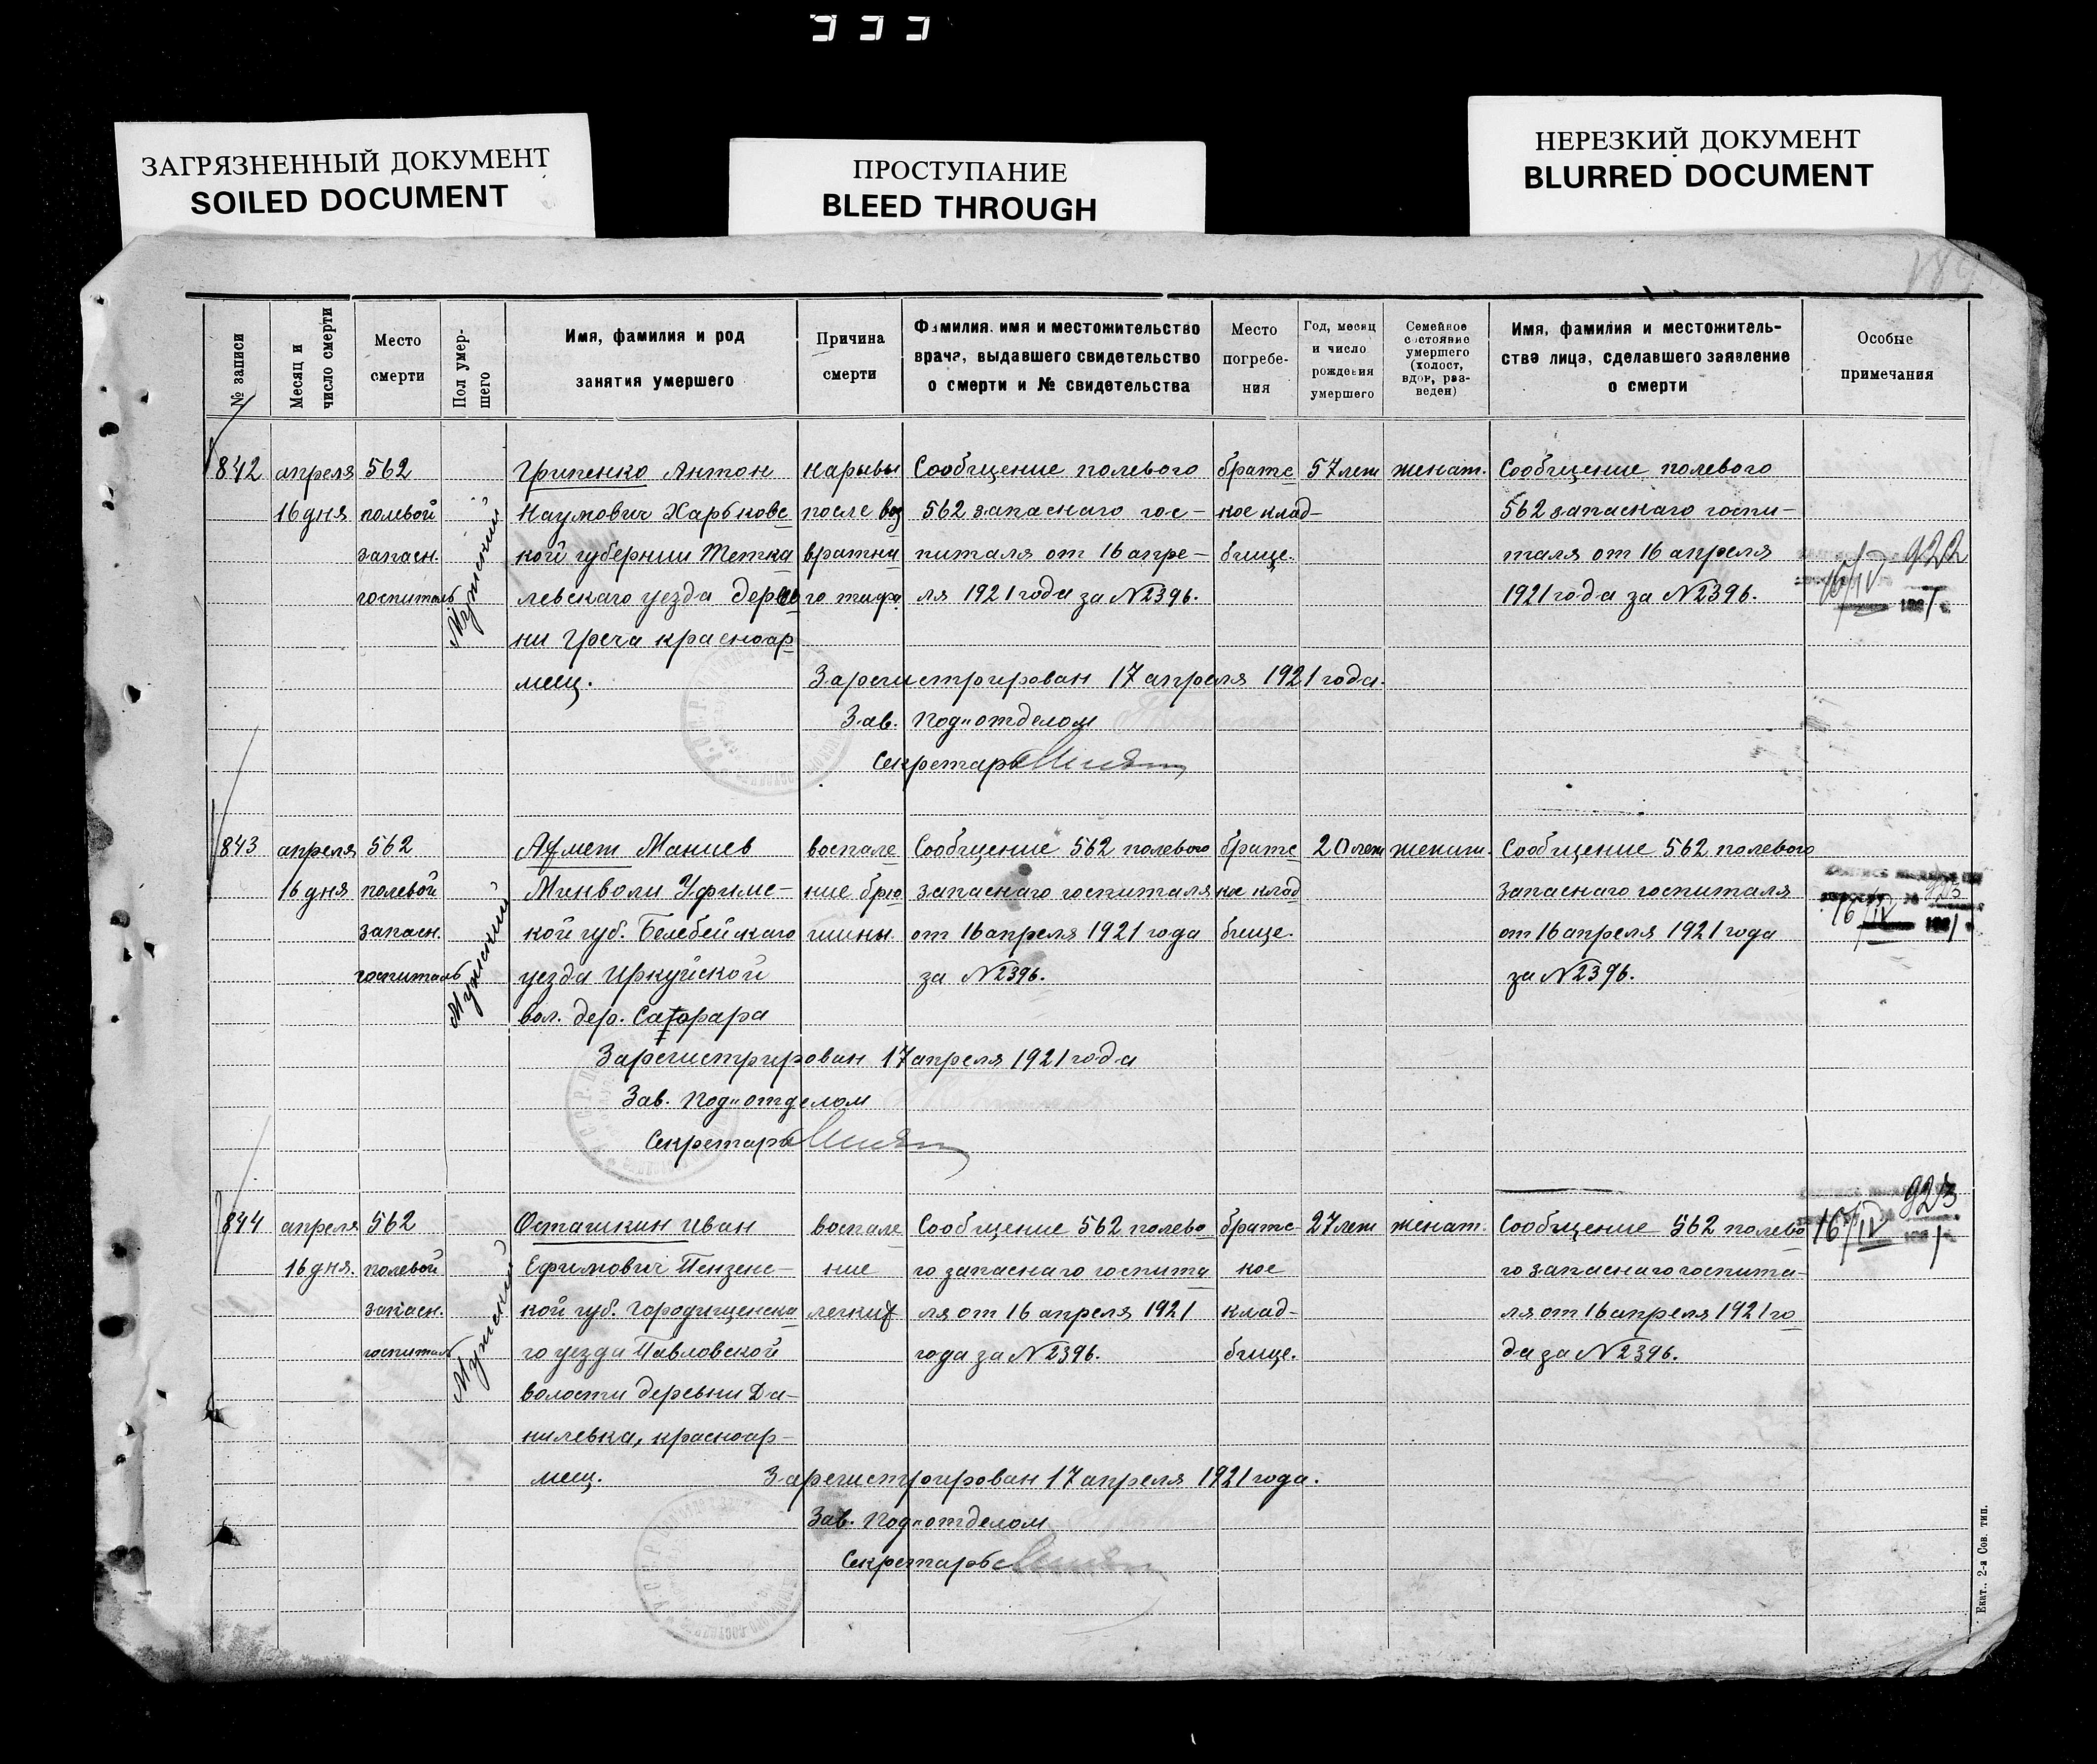 ЗАГРЯЗНЕННЫЙ ДОКУМЕНТ
SOILED DOCUMENT
ПРОСТУПАНИЕ
BLEED THROUGH
НЕРЕЗКИЙ ДОКУМЕНТ
BLURRED DOCUMENT
№ записи
Месяц и
число смерти
Место
смерти
Пол умер-
шего
Имя, фамилия и род
занятия умершего
Причина
смерти
Фамилия, имя и местожительство
врача, выдавшего свидетельство
о смерти и № свидетельства
Место
погребе-
ния
Год, месяц
и число
рождения
умершего
Семейное
состояние
умершего
(холост,
вдов, раз-
веден)
Имя, фамилия и местожитель-
ство лица, сделавшего заявление
о смерти
Особые
примечания
842
апреля
16 дня
562
полевой
запасн.
госпиталь
Мужский
Грипенко Антон
Наумович Харбковс
кой губернии Тетка
левскаго уезда дерев
ни Греча красноар
меец.
нарывы
после воз
вратна
го тифа
Сообщение полевого
562 запаснаго гос-
питаля от 16 апре-
ля 1921 года за №2396.
братс
кое клад-
бище.
57 лет
женат.
Сообщение полевого
562 запаснаго госпи-
таля от 16 апреля
1921 года за №2396.
922
16/IV
Зарегистрирован 17 апреля 1921 года.
Зав. Под"отделом
Секретарь
843
апреля
16 дня
562
полевой
запасн.
госпиталь
Мужский
Ахмет Маниев
Минволи Уфимс-
кой губ. Белебейскаго
уезда Иркуйской
вол. дер.
воспале
ние брю
шины.
Сообщение 562 полевого
запаснаго госпиталя
от 16 апреля 1921 года
за №2396.
братс
кое клад
бище.
20 лет
женат.
Сообщение 562 полевого
запаснаго госпиталя
от 16 апреля 1921 года
за №2396.
16/IV
Зарегистрирован 17 апреля 1921 года
Зав. Под"отделом
Секретарь
844
апреля
16 дня.
562
полевой
запасн.
госпиталь
Мужский
Осташкин Иван
Ефимович Пензенс-
кой губ. Городищенска
го уезда Павловской
волости деревни Да-
нилевка, красноар-
меец.
воспале
ние
легких
Сообщение 562 полево
го запаснаго госпита
ля от 16 апреля 1921
года за №2396.
братс-
кое
клад-
бище.
27 лет
женат.
Сообщение 562 полево
го запаснаго госпита-
ля от 16 апреля 1921 го
да за №2396.
923
16/IV
Зарегистрирован 17 апреля 1921 года.
Зав. Под"отделом
Секретарь
Екат., 2-я Сов. тип.